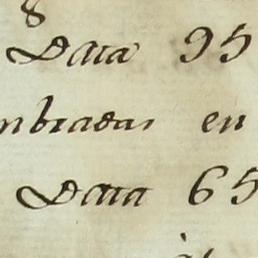 8
Data 95
mbradas en
Data 65